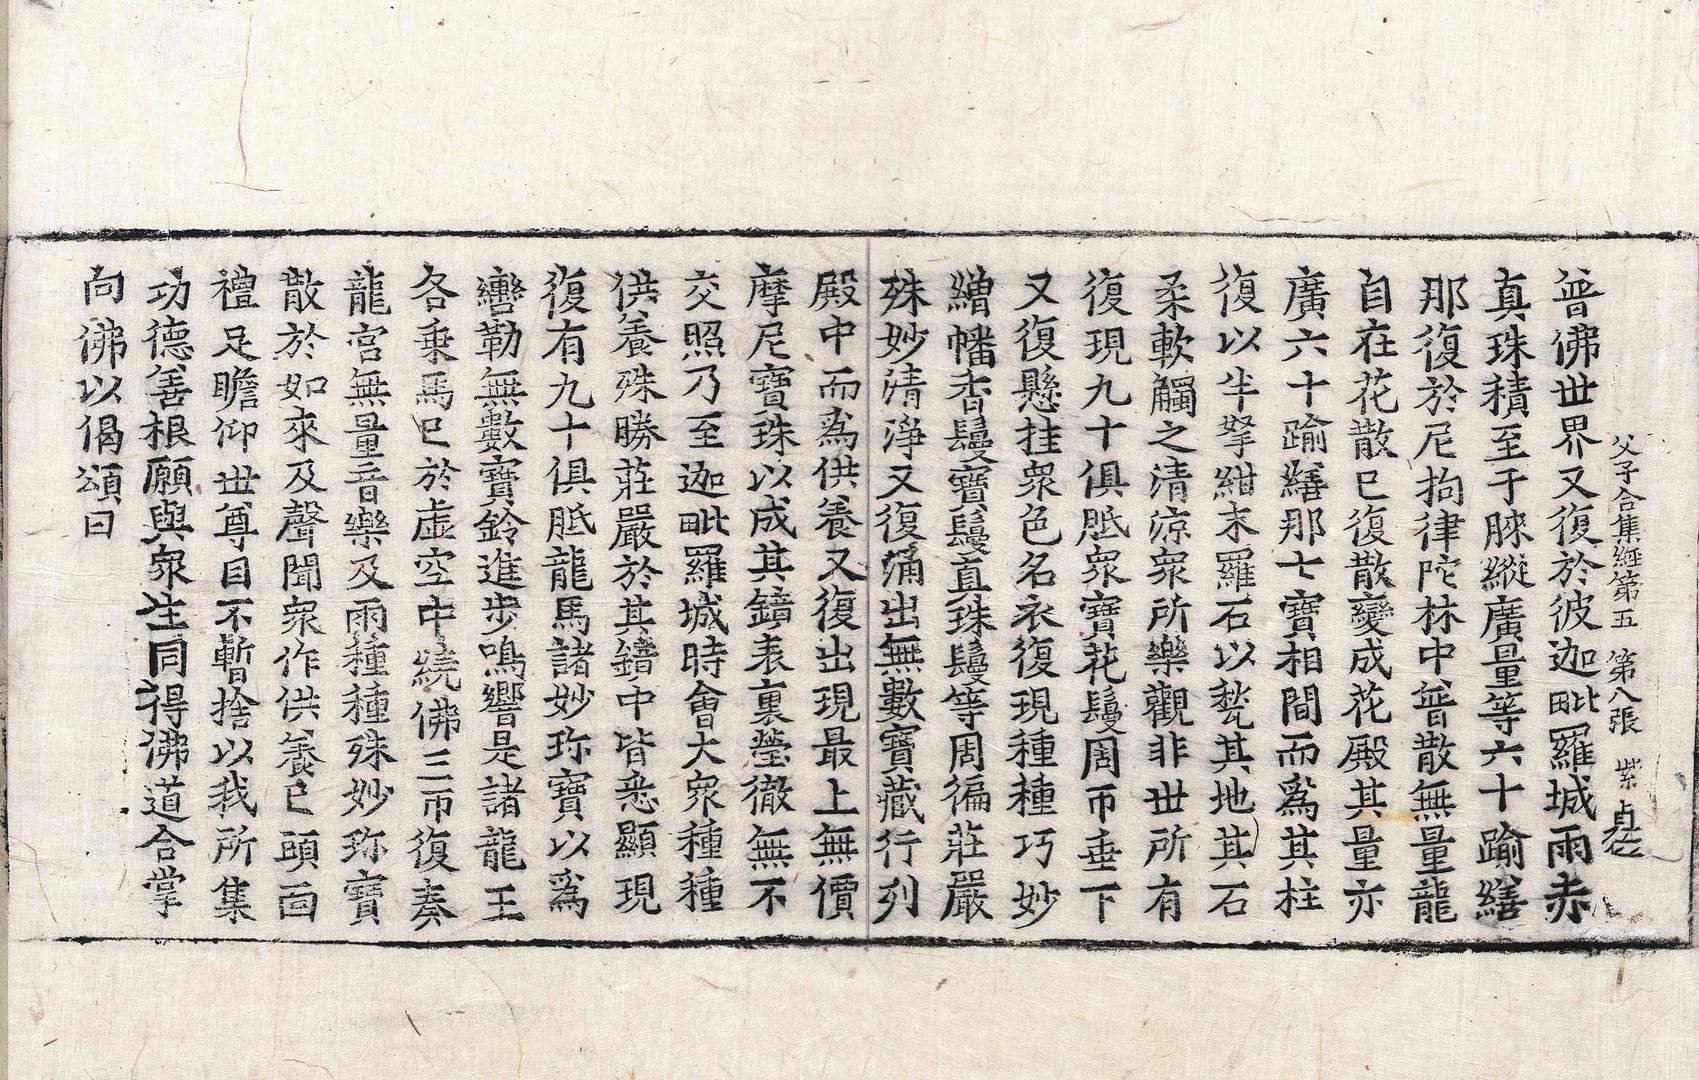 父子合集經第五 第八張 紫
普佛世界又復於彼迦毗羅城雨赤
真珠積至于𦛗縱廣量等六十踰繕
那復於尼拘律陀林中普散無量龍
自在花散已復散變成花殿其量亦
廣六十踰繕那七寶相間而爲其柱
復以牟拏紺末羅石以甃其地其石
柔軟觸之清涼衆所樂觀非世所有
復現九十俱胝衆寶花鬘周帀垂下
又復懸挂衆色名衣復現種種巧妙
繒幡香鬘寶鬘真珠鬘等周徧莊嚴
殊妙清淨又復涌出無數寶藏行列
殿中而爲供養又復出現最上無價
摩尼寶珠以成其鏡表裏瑩徹無不
交照乃至迦毗羅城時會大衆種種
供養殊勝莊嚴於其鏡中皆悉顯現
復有九十俱胝龍馬諸妙珎寶以爲
轡勒無數寶鈴進步鳴響是諸龍王
各乗馬已於虛空中繞佛三帀復奏
龍宮無量音樂及雨種種殊妙珎寶
散於如來及聲聞衆作供養已頭面
禮足瞻仰世尊目不暫捨以我所集
功德善根願與衆生同得佛道合掌
向佛以偈頌曰